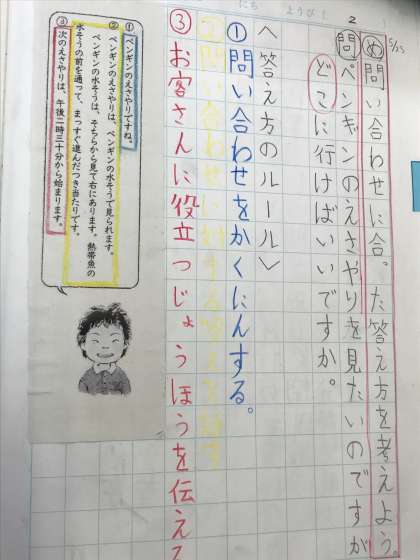 にち ようび
2
め 問い合わせに合った答え方を考えよう。
問 ペンギンのえさやりを見たいのですが
どこに行けばいいですか。
〈答え方のルール〉
①問い合わせをかくにんする。
②問い合わせに対する答えを話す
③お客さんに役立つじょうほうを伝える
① ペンギンのえさやりですね。
② ペンギンのえさやりは、ペンギンの水そうで見られます。
ペンギンの水そうは、そちらから見て右にあります。熱帯魚の
水そうの前を通って、まっすぐ進んだつき当たりです。
③ 次のえさやりは、午後二時三十分から始まります。